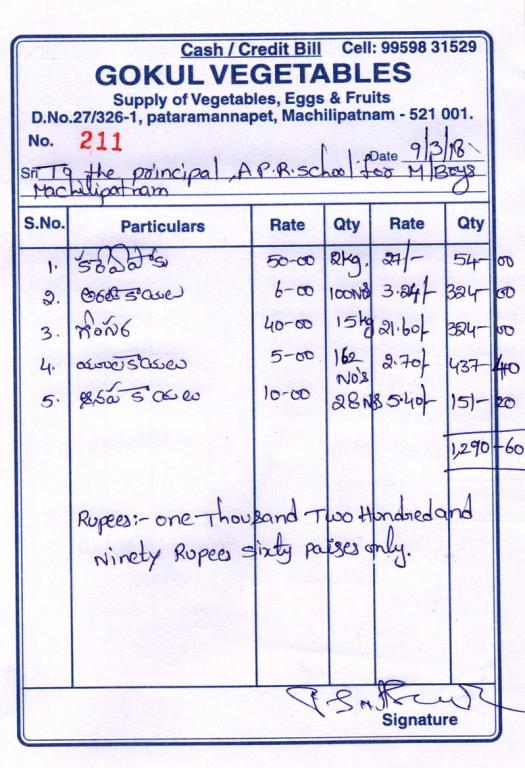 Cash / Credit Bill Cell: 99598 31529
GOKUL VEGETABLES
Supply of Vegetables, Eggs & Fruits
D.No.27/326-1, pataramannapet, Machilipatnam - 521 001.
No. 211 Date 9/3/18
Sri To the principal, A.P.R. school for M/Boys
Machilipatnam
S.No. Particulars Rate Qty Rate Qty
1. కరివేపాకు 50-00 2kg. 27/- 54-00
2. అరటికాయలు 6-00 100NS 3.24/- 324-00
3. గోంగూర 40-00 15kg 21.60/- 324-00
4. 5-00 162 No's 2.70/- 437-40
5. ఆనపకాయలు 10-00 28NS 5.40/- 151-20
1,290-60
Rupees:- one Thousand Two Hundred and
Ninety Rupees sixty paises only.
Signature